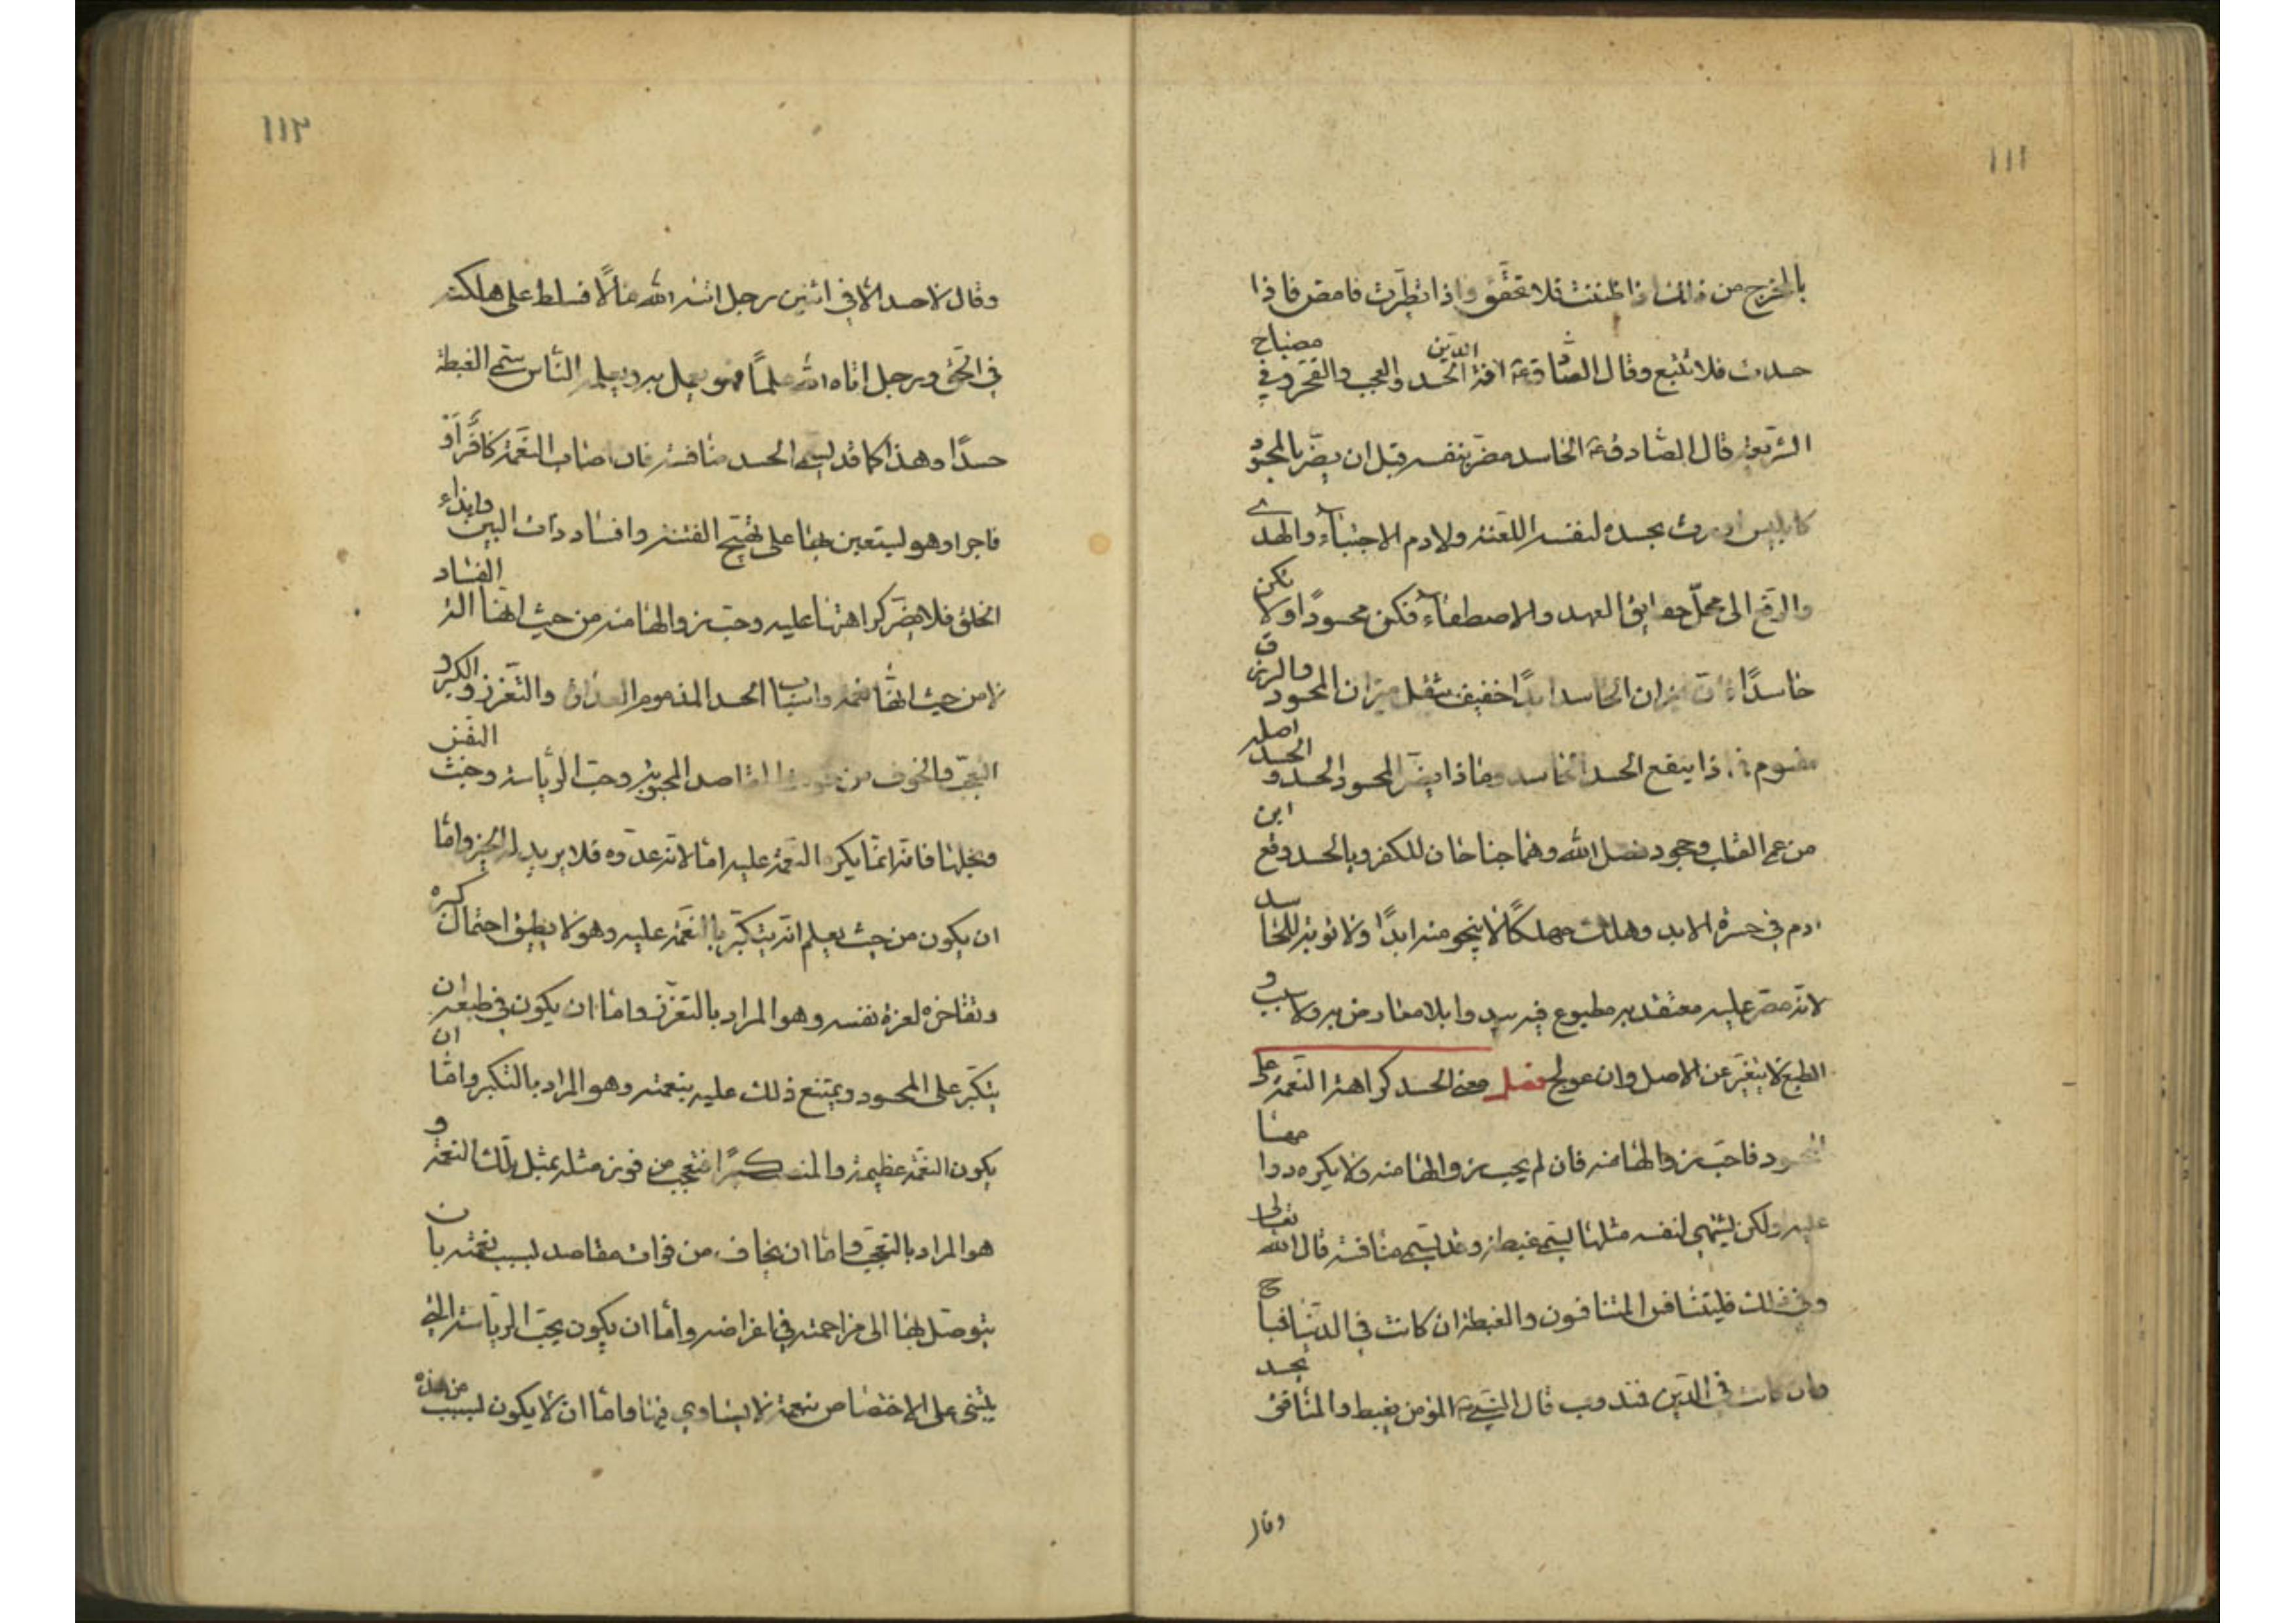 ١١١
بالمخرج من ذلك اذا ظننت فلا تحقق واذا تطيرت فامض فاذا
حسدت فلا تبتغ وقال الصادق ع افة الدين الحسد والعجب والفخر وفي مصباح
الشريعة قال الصادق ع الحاسد مضر بنفسه قبل ان يضر بالمحسود
كابليس اورث بحسده لنفسه اللعنة ولادم الاجتباء والهدى
والرفع الى محل حقايق العهد والاصطفاء فكن محسودا ولا تكن
حاسدا فان ميزان الحاسد ابدا خفيف بثقل ميزان المحسود والرزق
مقسوم فماذا ينفع الحسد الحاسد وماذا يضر المحسود الحسد والحسد اصله
من عمى القلب وجحود فضل الله وهما جناحان للكفر وبالحسد وقع ابن
ادم في حسرة الابد وهلك مهلكا لا ينجو منه ابدا ولا توبة للحاسد
لانه مصر عليه معتقد به مطبوع فيه يبدو بلا معارض به ولا سبب و
الطبع لا يتغير عن الاصل وان عولج فصل معنى الحسد كراهة النعمة على
المحسود فاحب زوالها منه فان لم يحب زوالها منه ولا يكره دوامها
عليه ولكن يشتهي لنفسه مثلها يسمى غبطة وقد يسمى منافسة قال الله تعالى
وفي ذلك فليتنافس المتنافسون والغبطة ان كانت في الدنيا فمباح
وان كانت في الدين فمندوب قال النبي ص المؤمن يغبط والمنافق يحسد
وقال
١١٢
وقال لا حسد الا في اثنين رجل اتيه الله مالا فسلط على هلكته
في الحق ورجل اتاه الله علما فهو يعمل به ويعلمه الناس سمى الغبطة
حسدا وهذا كما قد يسمى الحسد منافسة فان اصاب النعمة كافر او
فاجر او هو ليستعين بها على تهييج الفتنة وافساد ذات البين وايذاء
الخلق فلا يضر كراهتها عليه وحب زوالها منه من حيث انها الة الفساد
لا من حيث انها نعمة واسباب الحسد المذموم العداوة والتعزز والكبر و
التعجب والخوف من فوت المقاصد المحبوبة وحب الرياسة وخبث النفس
وبخلها فانه انما يكره النعمة عليه اما لانه عدوه فلا يريد له الخير واما
ان يكون من حيث يعلم انه يتكبر بالنعمة عليه وهو لا يطيق احتمال كبره
وتفاخره لعزة نفسه وهو المراد بالتعزز واما ان يكون في طبعه ان
يتكبر على المحسود ويمتنع ذلك عليه بنعمته وهو المراد بالتكبر واما ان
يكون النعمة عظيمة والمنصب كبيرا فتعجب من فوز مثله بمثل تلك النعمة و
هو المراد بالتعجب واما ان يخاف من فوات مقاصد بسبب نعمته بان
يتوصل بها الى مزاحمته في اغراضه واما ان يكون يحب الرياسة التي
يبتنى على الاختصاص بنعمة لا يساوي فيها واما ان لا يكون بسبب من هذه